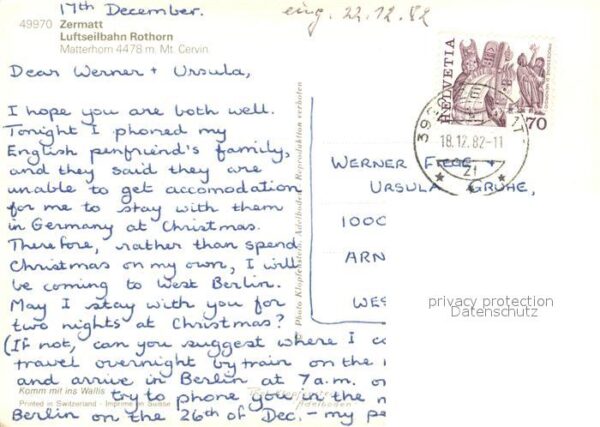 17th December.
eing. 22.12.82
49970 Zermatt
Luftseilbahn Rothorn
Matterhorn 4478 m. Mt Cervin.
Dear Werner + Ursula,
I hope you are both well.
Tonight I phoned my
English penfriend's family,
and they said they are
unable to get accomodation
for me to stay with them
in Germany at Christmas.
Therefore, rather than spend
Christmas on my own, I will
be coming to West Berlin.
May I stay with you for
two nights at Christmas?
(If not, can you suggest where I c
travel overnight by train on the
and arrive in Berlin at 7a.m. o
try to phone you in the m
Berlin on the 26th of Dec. - my pe
Komm mit ins Wallis
Printed in Switzerland - Imprimé en Suisse
© Photo Klopfenstein, Adelboden Reproduktion verboten
HELVETIA
70
18.12.82-11
WERNER +
URSULA GRUHE,
1000
ARN
WES
privacy protection
Datenschutz